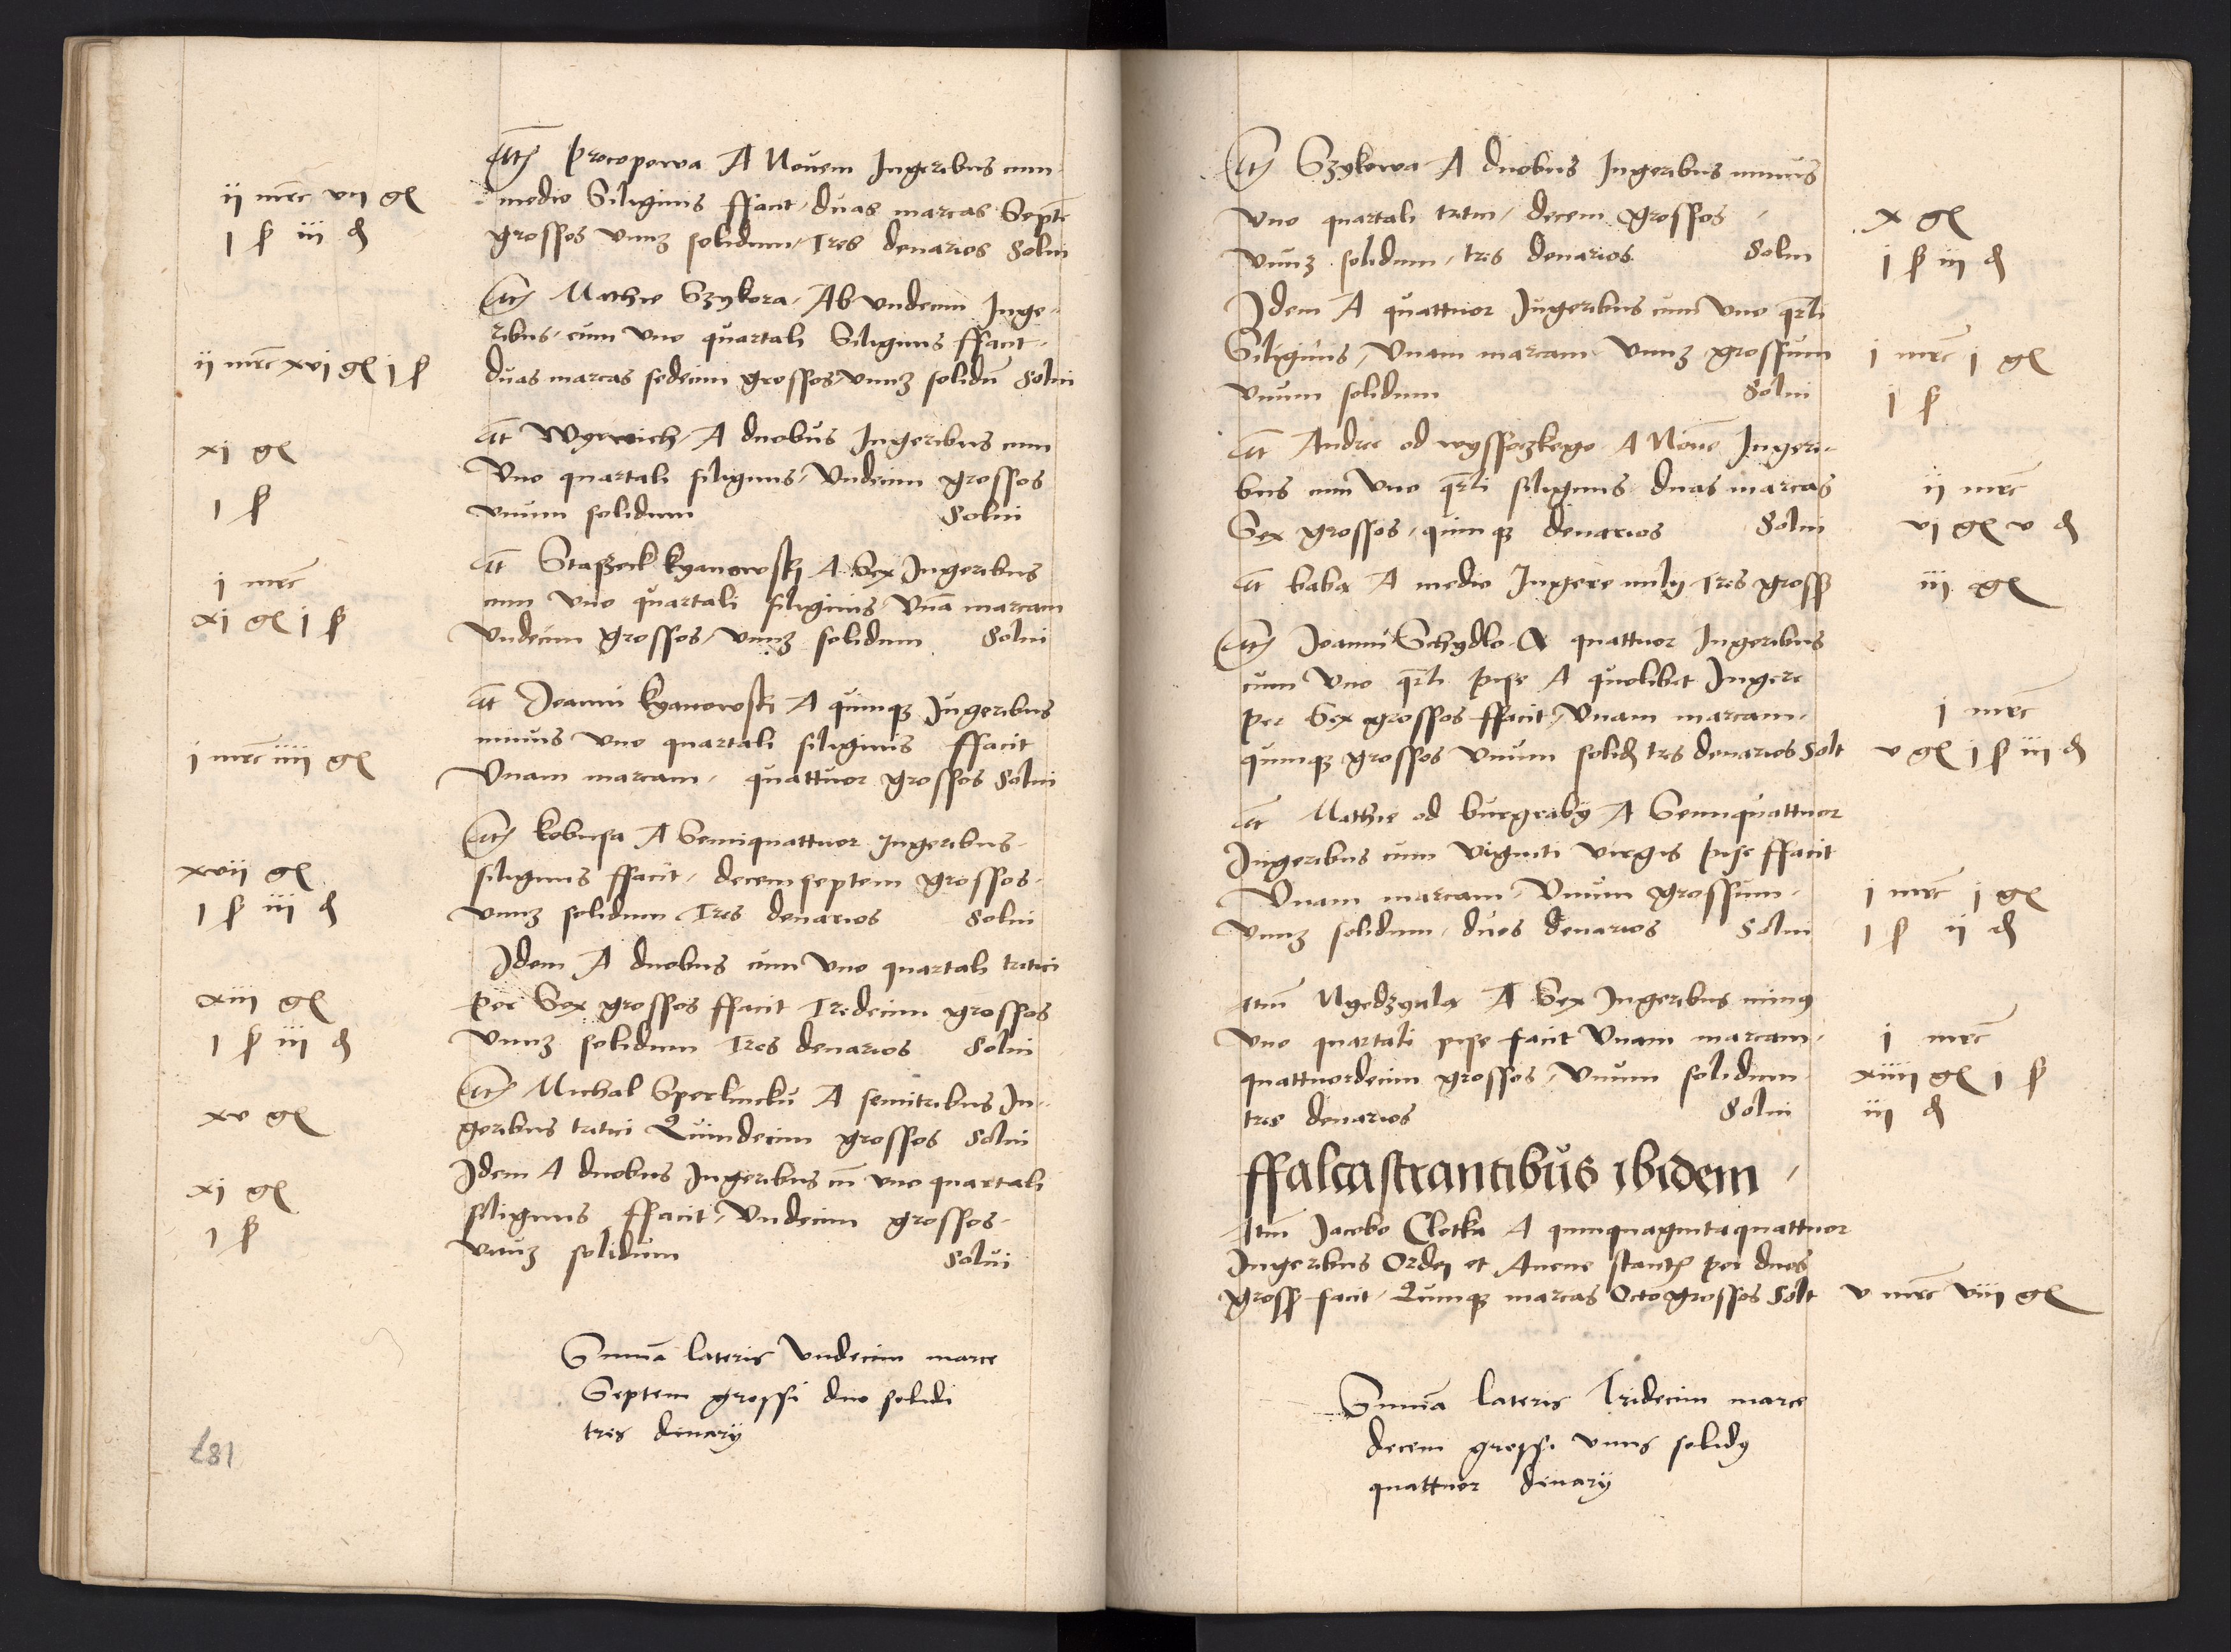 Itē procopowa A Nouem Jugeribus cum
medio Siliginis ffacit duas marcas Septē
ij mrc vij gʳ
grossos vnuʒ solidum Tres denarios Solui
j ſ iij đ
Itē Mathie Szykora Ab vndecim Juge-
ribus cum vno quartali Siliginis ffacit
duas marcas sedecim grossos vnuʒ solidū Solui
ij mrc xvj gʳ j ſ
Itē Wyrwich A duobus Jugeribus cum
xj gʳ
vno quartali siliginis Vndecim grossos
vnum solidum Solui
j ſ
Itē Staßeck kyanowski A Sex Jugeribus
j mrc
cum vno quartali siliginis Vnā marcam
Vndecim grossos vnuʒ solidum Solui
xj gʳ j ſ
Itē Joanni kyanowski A quinqʒ Jugeribus
minus vno quartali siliginis ffacit
Vnam marcam quattuor grossos Solui
j mrc iiij gʳ
Itē kobusa A Semiquattuor Jugeribus
siliginis ffacit decemseptem grossos
xvij gʳ
vnuʒ solidum Tres denarios Solui
j ſ iij đ
Idem A duobus cum vno quartali tritici
per Sex grossos ffacit Tredecim grossos
xiij gʳ
Vnuʒ solidum Tres denarios Solui
j ſ iij đ
Itē Michal Sperlincku A semitribus Ju-
geribus tritici Quindecim grossos Solui
xv gʳ
Idem A duobus Jugeribus cū vno quartali
siliginis ffacit Vndecim grossos
xj gʳ
vnuʒ solidum Solui
j ſ
Summa lateris vndecim marce
Septem grossi duo solidi
tres denarij
187
Itē Szykowa A duobus Jugeribus minus
Vno quartali tritici decem grossos
x gʳ
Vnuʒ solidum tres denarios Solui
j ſ iij đ
Idem A quattuor Jugeribus cum Vno qrli
Siliginis Vnam marcam Vnuʒ grossum
j mrc j gʳ
Vnum solidum Solui
j ſ
Itē Andree od wyssoczkego A Nouē Jugeri-
bus cum vno qrli siliginis duas marcas
ij mrc
Sex grossos quinqʒ denarios Solui
vj gʳ v đ
Itē baba A medio Jugere milij Tres gross
iij gʳ
Itē Joanni Schydlo A quattuor Jugeribus
cum Vno qrli pise A quolibet Jugere
per Sex grossos ffacit Vnam marcam
j mrc
quinqʒ grossos Vnum solid tres denarios Solt
v gʳ j ſ iij đ
Itē Mathie od burgraby A Semiquattuor
Jugeribus cum viginti virgis pise ffacit
Vnam marcam Vnum grossum
j mrc j gʳ
Vnuʒ solidum duos denarios Solui
j ſ ij đ
Itm Nyedzyala A Sex Jugeribus minus
Vno quartali pise facit Vnam marcam
j mrc
quattuordecim grossos Vnum solidum
xiiij gʳ j ſ
tres denarios Solui
iij đ
ffalcastrantibus ibidem
Itm Jacobo Clotka A quinquagintaquattuor
Jugeribus Ordei et Auene stantē per duos
gross facit Quinqʒ marcas Octo grossos Solt
v mrc viij gʳ
Summa lateris Tridecim marce
decem grossi vnus solidus
quattuor denarij